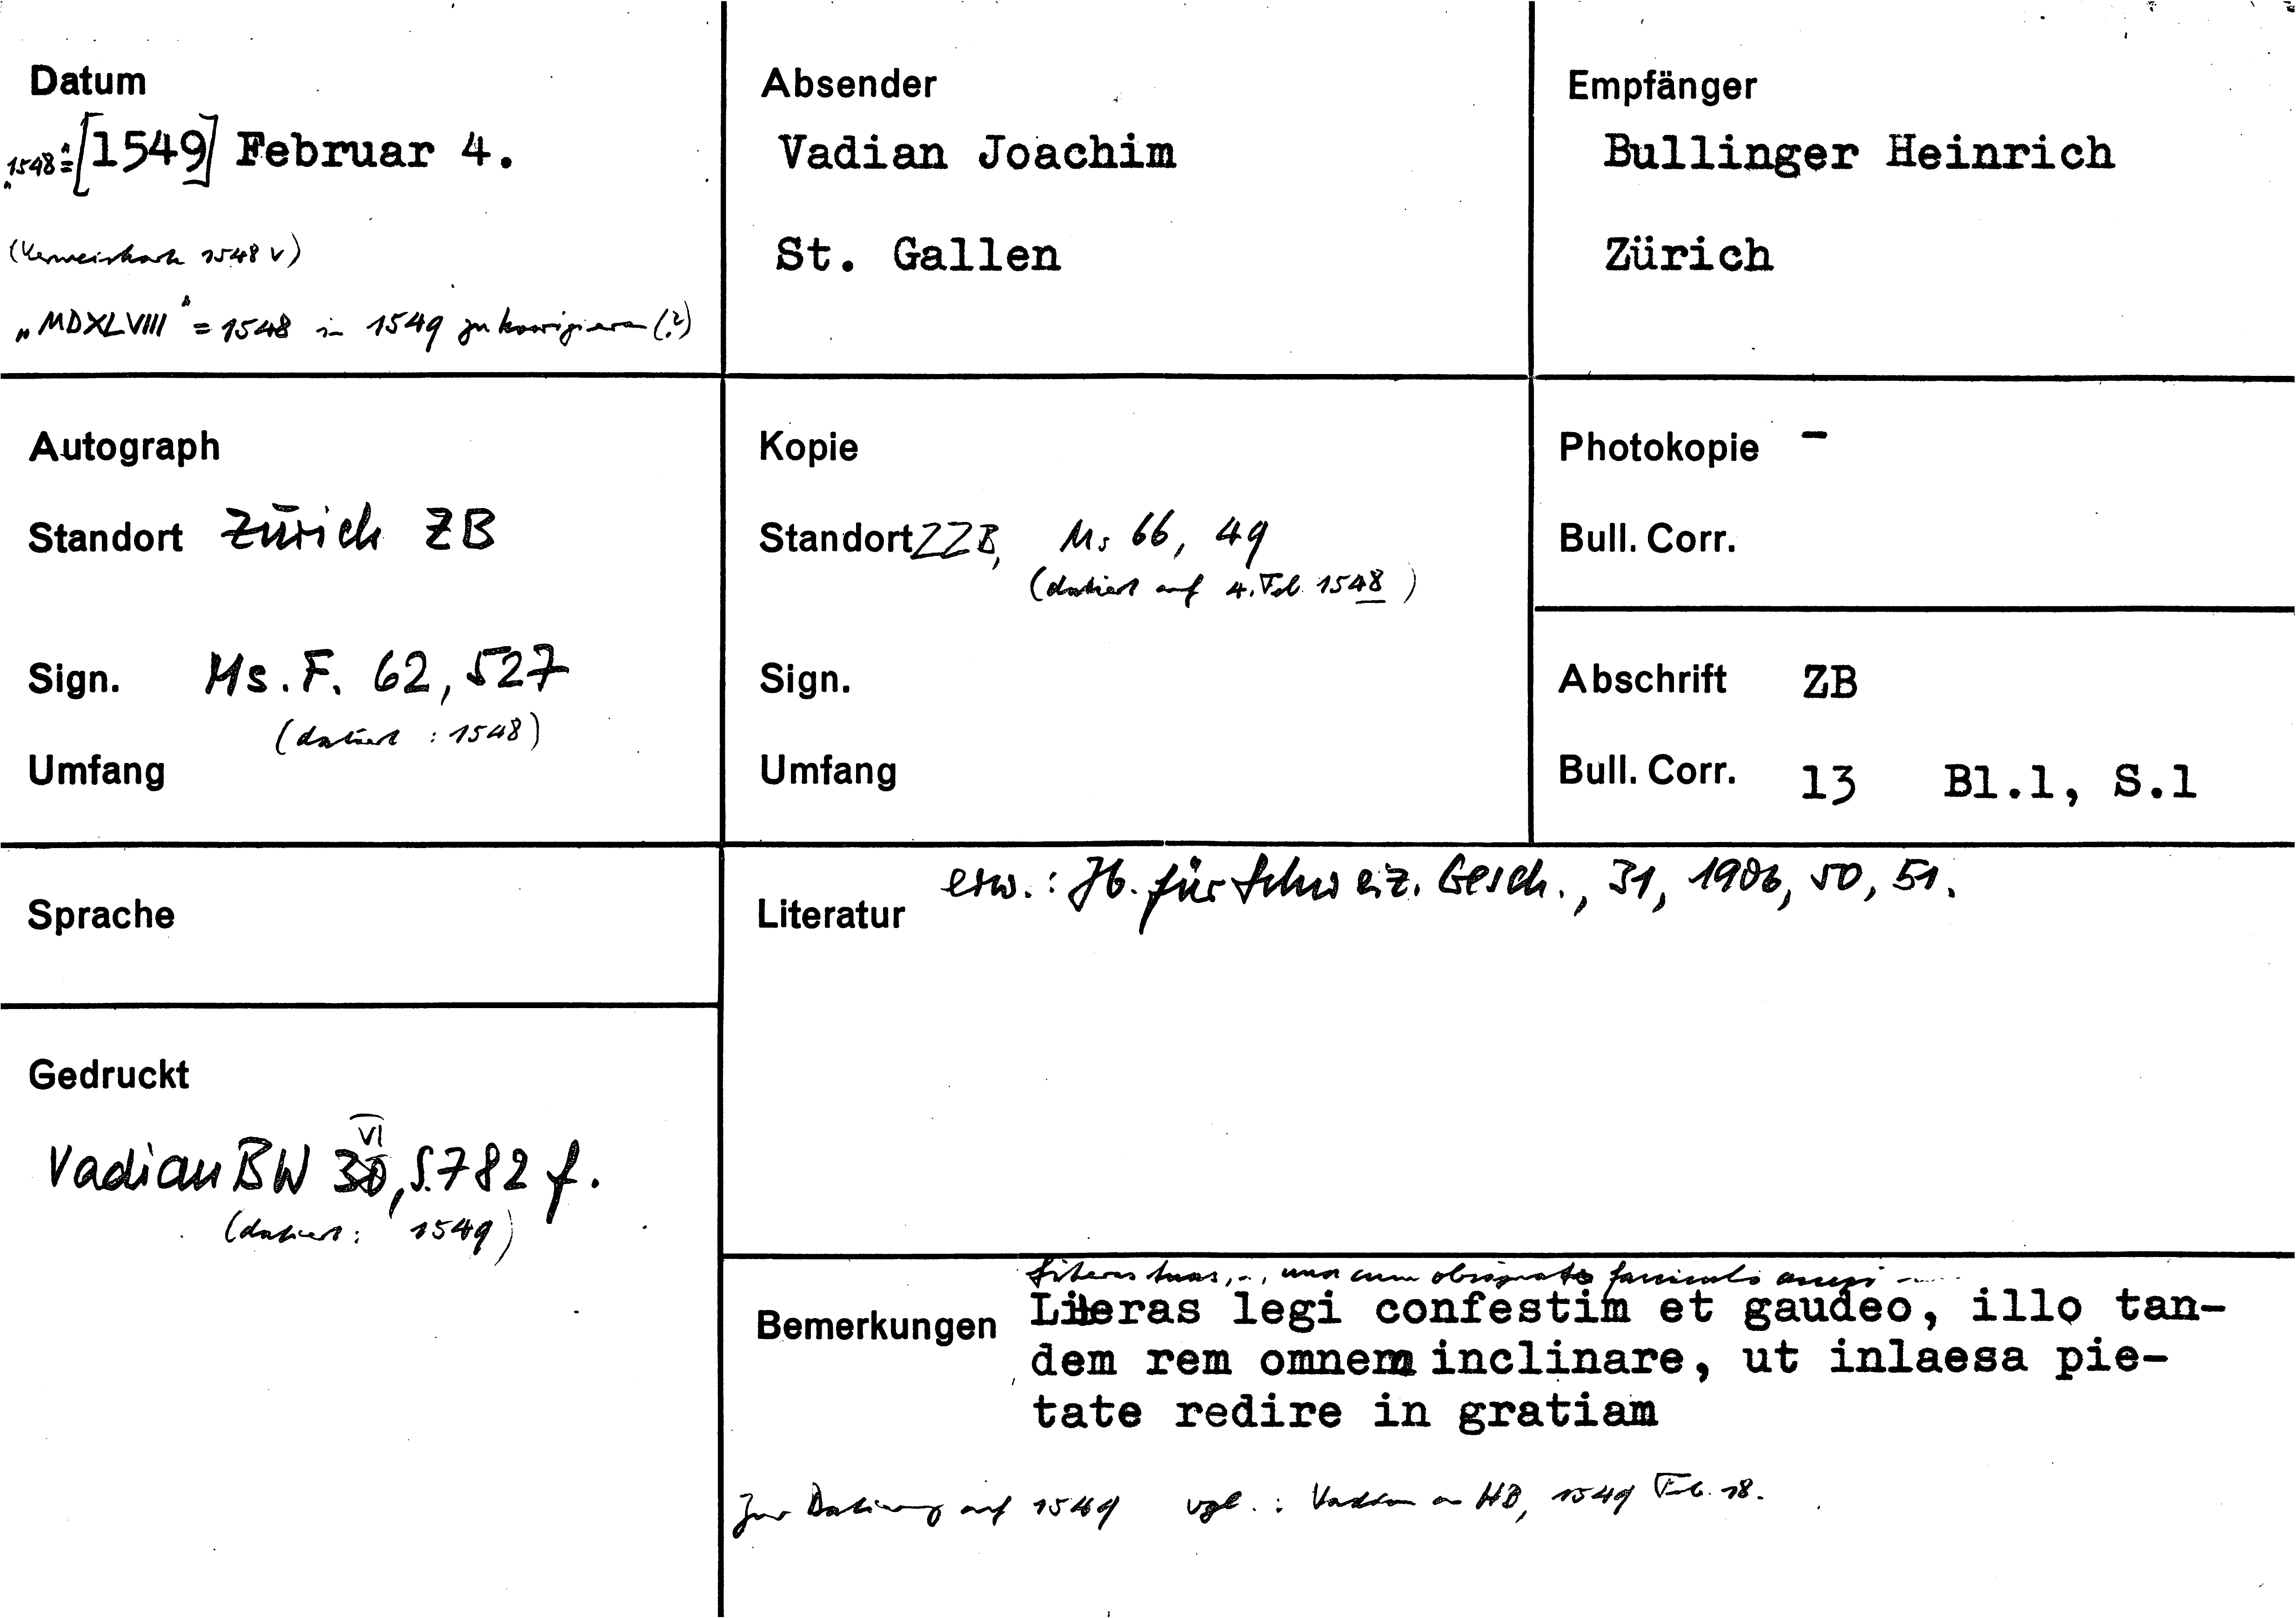 Datum
"1548"=[1549] Februar 4.
(Verweiskarte 1548 V)
„MDXLVIII" = 1548 in 1549 zu korrigieren (?)
Absender
Vadian Joachim
St. Gallen
Empfänger
Bullinger Heinrich
Zürich
Autograph
Standort Zürich ZB
Sign. Ms. F. 62, 527
(datiert : 1548)
Umfang
Kopie
Standort ZZB, Ms 66, 49
(datiert auf 4. Feb. 1548)
Sign.
Umfang
Photokopie –
Bull. Corr.
Abschrift ZB
Bull. Corr. 13 Bl.1, S.1
Sprache
Literatur erw.: Jb. für Schweiz. Gesch., 31, 1906, 50, 51.
Gedruckt
VI
Vadian BW 30, S. 782 f.
(datiert: 1549)
Literas tuas, .., una cum obsignato fasciculo accepi ....
Bemerkungen Literas legi confestim et gaudeo, illo tan-
dem rem omnem inclinare, ut inlaesa pie-
tate redire in gratiam
Zur Datierung auf 1549 vgl. : Vadian an HB, 1549 Feb. 18.